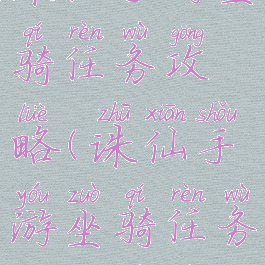 qí rèn wù gōng
骑任务攻
lüè zhū xiān shǒu
略(诛仙手
yóu zuò qí rèn wù
游坐骑任务